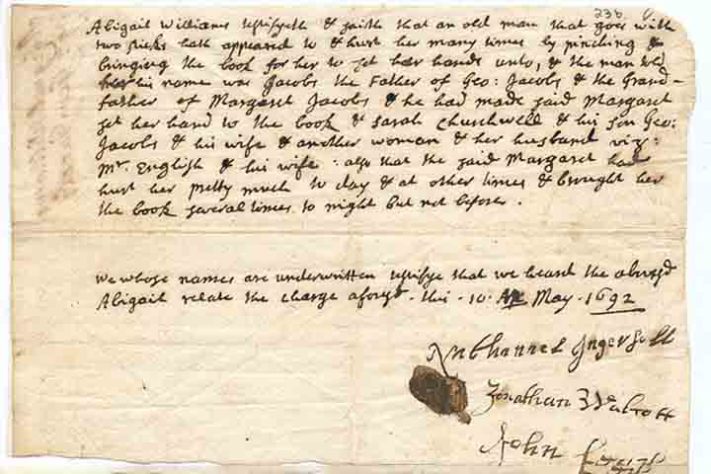 238
Abigail Williams testifyeth & saith that an old man that goes with
two sticks hath appeared to & hurt her many times by pinching &
bringing the book for her to set her hand unto, & the man told
her his name was Jacobs the Father of Geo: Jacobs & the Grand-
father of Margaret Jacobs & he had made said Margaret
set her hand to the book & Sarah Churchwell & his son Geo:
Jacobs & his wife & another woman & her husband viz:
Mr. English & his wife: also that the said Margaret had
hurt her pretty much to day & at other times & brought her
the book several times to night but not before.
we whose names are underwritten testifye that we heard the abovesd
Abigail relate the charge aforesd. this 10: May. 1692
Nathanael Ingersoll
Jonathan Walcott
John